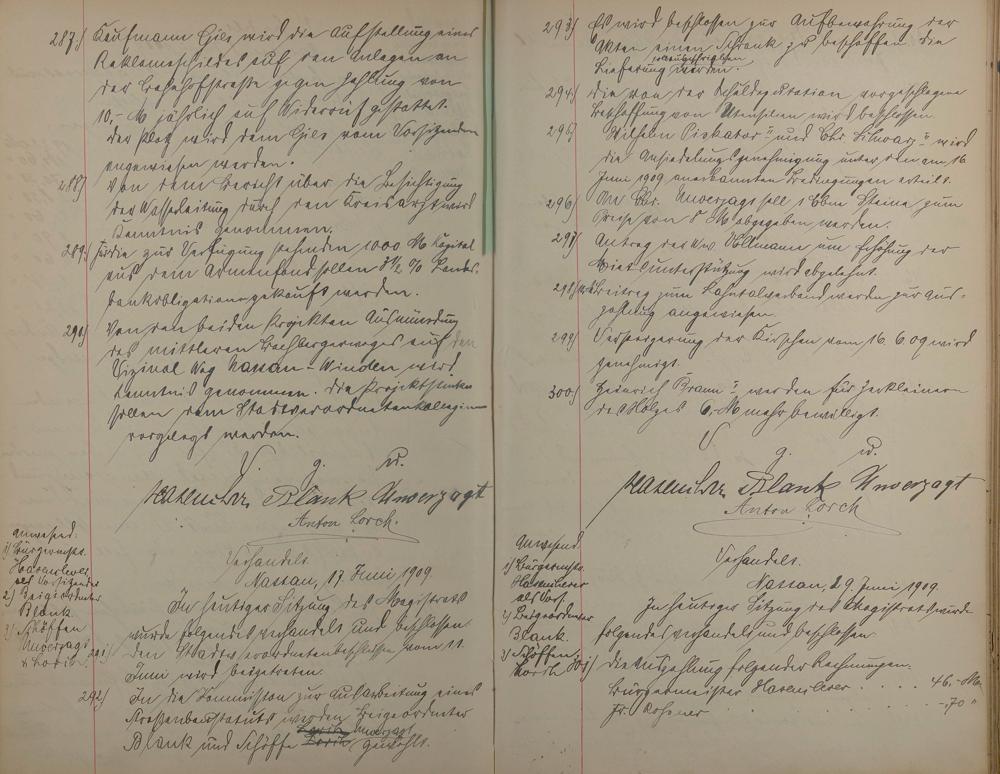 287.) Kaufmann Gils wird die Aufstellung eines
Reklameschildes auf den Anlagen an
der Bahnhofstraße gegen Zahlung von
10,- M jährlich auf Widerruf gestattet.
Der Platz wird dem Gils vom Vorsitzenden
angewiesen werden.
288) Von dem Bericht über die Besichtigung
der Wasserleitung durch den Kreisarzt wird
Kenntnis genommen.
289.) Für die zur Verfügung stehenden 1000 M Kapital
aus dem Armenfond sollen 3½ % Landes-
bankobligationen gekauft werden.
290) Von den beiden Projekten Ausmündung
des mittleren Bachbergerweges auf den
Vizinal Weg Nassau-Winden wird
Kenntnis genommen. Die Projektstücke
sollen dem Stadtverordnetenkollegium
vorgelegt werden.
V. g. u.
Hasenclever Blank Unverzagt
Anton Lorch.
Anwesend:
1) Bürgermstr.
Hasenclever
als Vorsitzender
2) Beigeordneter
Blank
3) Schöffen
Unverzagt
& Lorch
Verhandelt.
Nassau, 17. Juni 1909.
In heutiger Sitzung des Magistrats
wurde folgendes verhandelt und beschlossen.
291) Den Stadtverordnetenbeschlüssen vom 11.
Juni wird beigetreten.
292) In die Kommission zur Ausarbeitung eines
Straßenbaustatuts werden Beigeordneter
Blank und Schöffe Unverzagt gewählt.
293) Es wird beschlossen zur Aufbewahrung der
Akten einen Schrank zu beschaffen die
Lieferung ausgeschrieben werden.
294.) Die von der Schuldeputation vorgeschlagene
Beschaffung von Utensilien wird beschlossen.
295) Wilhelm Piskator und Chr. Schwarz wird
die Ansiedelungsgenehmigung unter den am 16.
Juni 1909 anerkannten Bedingungen erteilt.
296) An Chr. Unverzagt soll 1 Cbm Steine zum
Preise von 8 M abgegeben werden.
297) Antrag des Ww. Vollmann um Erhöhung der
Mietsunterstützung wird abgelehnt.
298) Beitrag zum Lahntalverband werden zur Aus-
zahlung angewiesen.
299) Versteigerung der Kirschen vom 16.6.09 wird
genehmigt.
300.) Heinrich Braun werden für Zerkleinern
des Holzes 6,- M mehr bewilligt.
V. g. u.
Hasenclever Blank Unverzagt
Anton Lorch
Anwesend
1) Bürgermstr.
Hasenclever
als Vors.
2) Beigeordneter
Blank.
3) Schöffen:
Lorch
Verhandelt.
Nassau, 29. Juni 1909.
In heutiger Sitzung des Magistrats wurde
folgendes verhandelt und beschlossen.
301) Die Auszahlung folgender Rechnungen:
Bürgermeister Hasenclever . . . . . 46.- M
Fr. . . . . . . . . -,70 "